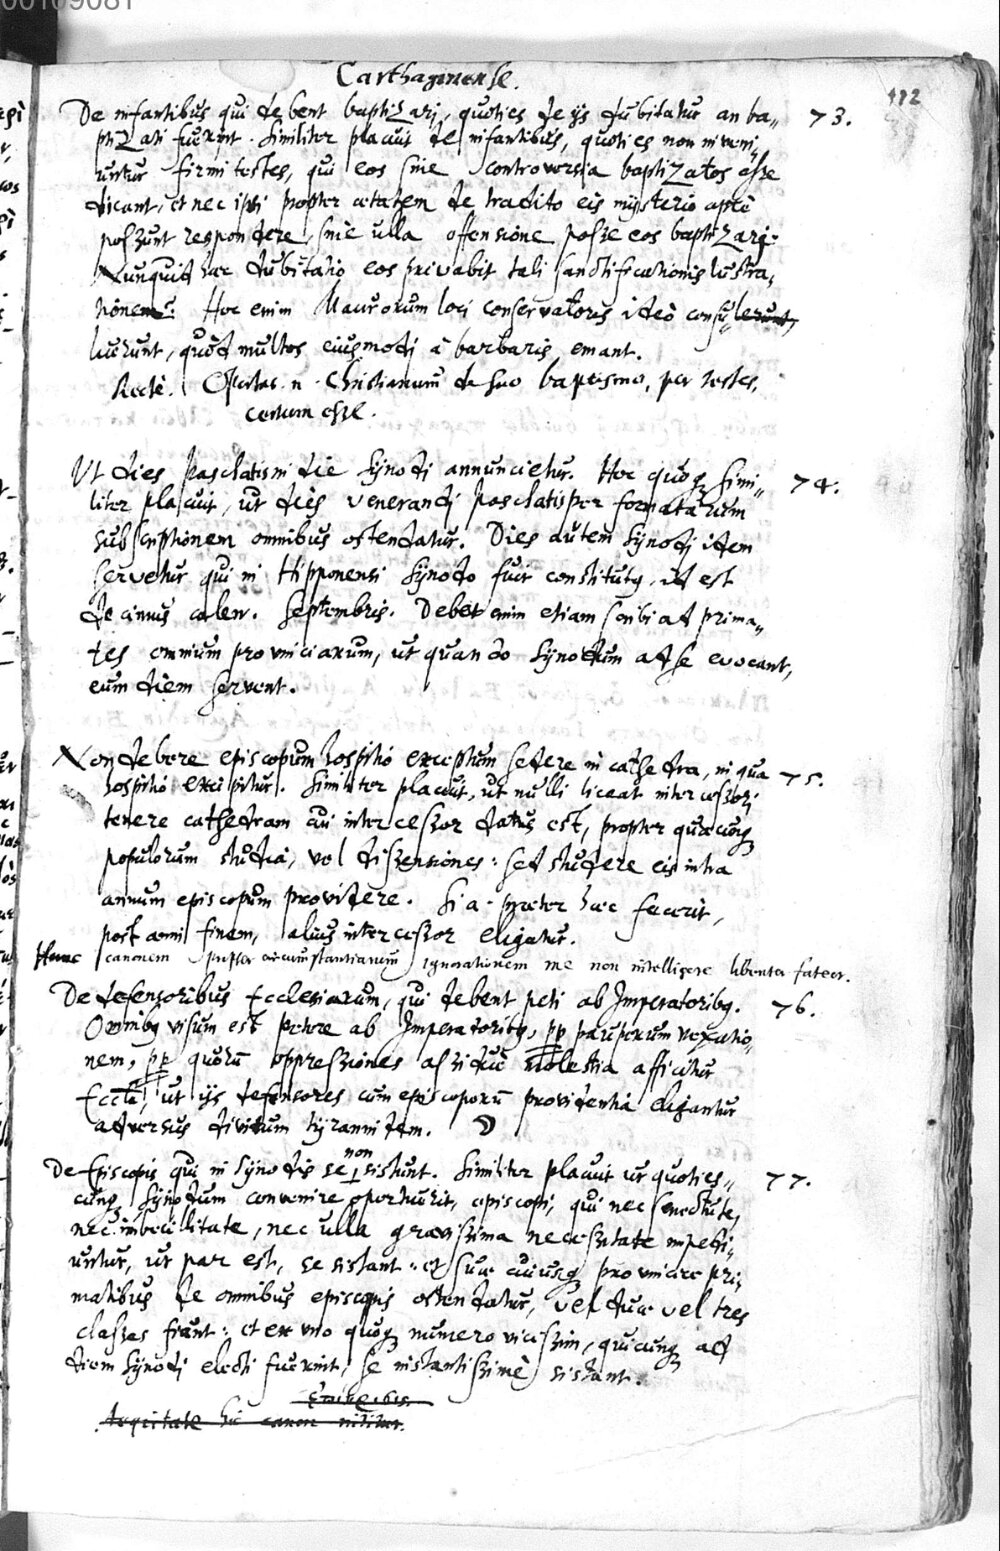 00109081
Carthaginense.
112
De infantibus qui debent baptizari, quoties de ijs dubitatur an ba„ 73.
ptizati fuerint. Similiter placuit de infantibus, quoties non inveni„
untur firmi testes, qui eos sine controversia baptizatos esse
dicant, et nec ipsi propter ætatem de tradito eis mysterio aptè
possunt respondere, sine ulla offensione posse eos baptizari.
Nunquid hæc dubitatio eos privabit tali sanctificationis lustra„
tionem. Hoc enim Maurorum loci conservatores ideò consu„
luerunt, quòd multos eiusmodi à barbaris emant.
Rectè. Oportas n. Christianum de suo baptismo, per testes,
certum esse.
Ut dies paschatis in die Synodi annuncietur. Hoc quoq simi„ 74.
liter placuit, ut dies venerandi paschatis per formatarum
subscriptionem omnibus ostendatur. Dies autem Synodi idem
servetur qui in Hipponensi Synodo fuit constitutus, id est
decimus calen. Septembris. Debet enim etiam scribi ad prima„
tes omnium provinciarum, ut quando Synodum ad se evocant,
eum diem servent.
Non debere episcopum hospitio exceptum sedere in cathedra, in qua 75.
hospitio excipitur. Similiter placuit, ut nulli liceat intercessori
tenere cathedram cui intercessor datus est, propter quæcunq
populorum studia, vel dissensiones: sed studere eis intra
annum episcopum providere. Si a. præter hæc fecerit,
post anni finem, alius intercessor eligatur.
Hunc canonem propter circumstantiarum ignorationem me non intelligere libenter fateor.
De defensoribus Ecclesiarum, qui debent peti ab Imperatoribq. 76.
Omnibq visum est petere ab Imperatoribq, pp pauperum vexatio„
nem, pp quorũ oppressiones assiduè molestia afficitur
Eccła, ut ijs defensores cum episcoporũ providentia eligantur
adversus divitum tyrannidem.
De Episcopis qui in Synodis se non sistunt. Similiter placuit ut quoties„ 77.
cunq Synodum convenire oportuerit, episcopi, qui nec senectute,
nec imbecillitate, nec ulla gravissima necessitate impedi„
untur, ut par est, se sistant: et suæ cuiusq provinciæ pri„
matibus de omnibus episcopis ostendatur, vel duæ vel tres
classes fiant: et ex uno quoq numero vicissim, quicunq ad
diem Synodi electi fuerint, se instantissimè sistant.
hic canon nititur.